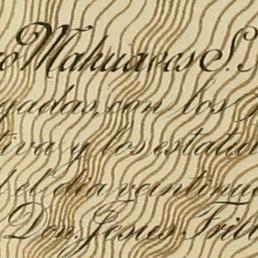 ro Mahuaves S.
gadas, con los
tiva y los estatu
el dia veintinue
Don Jesús Trill